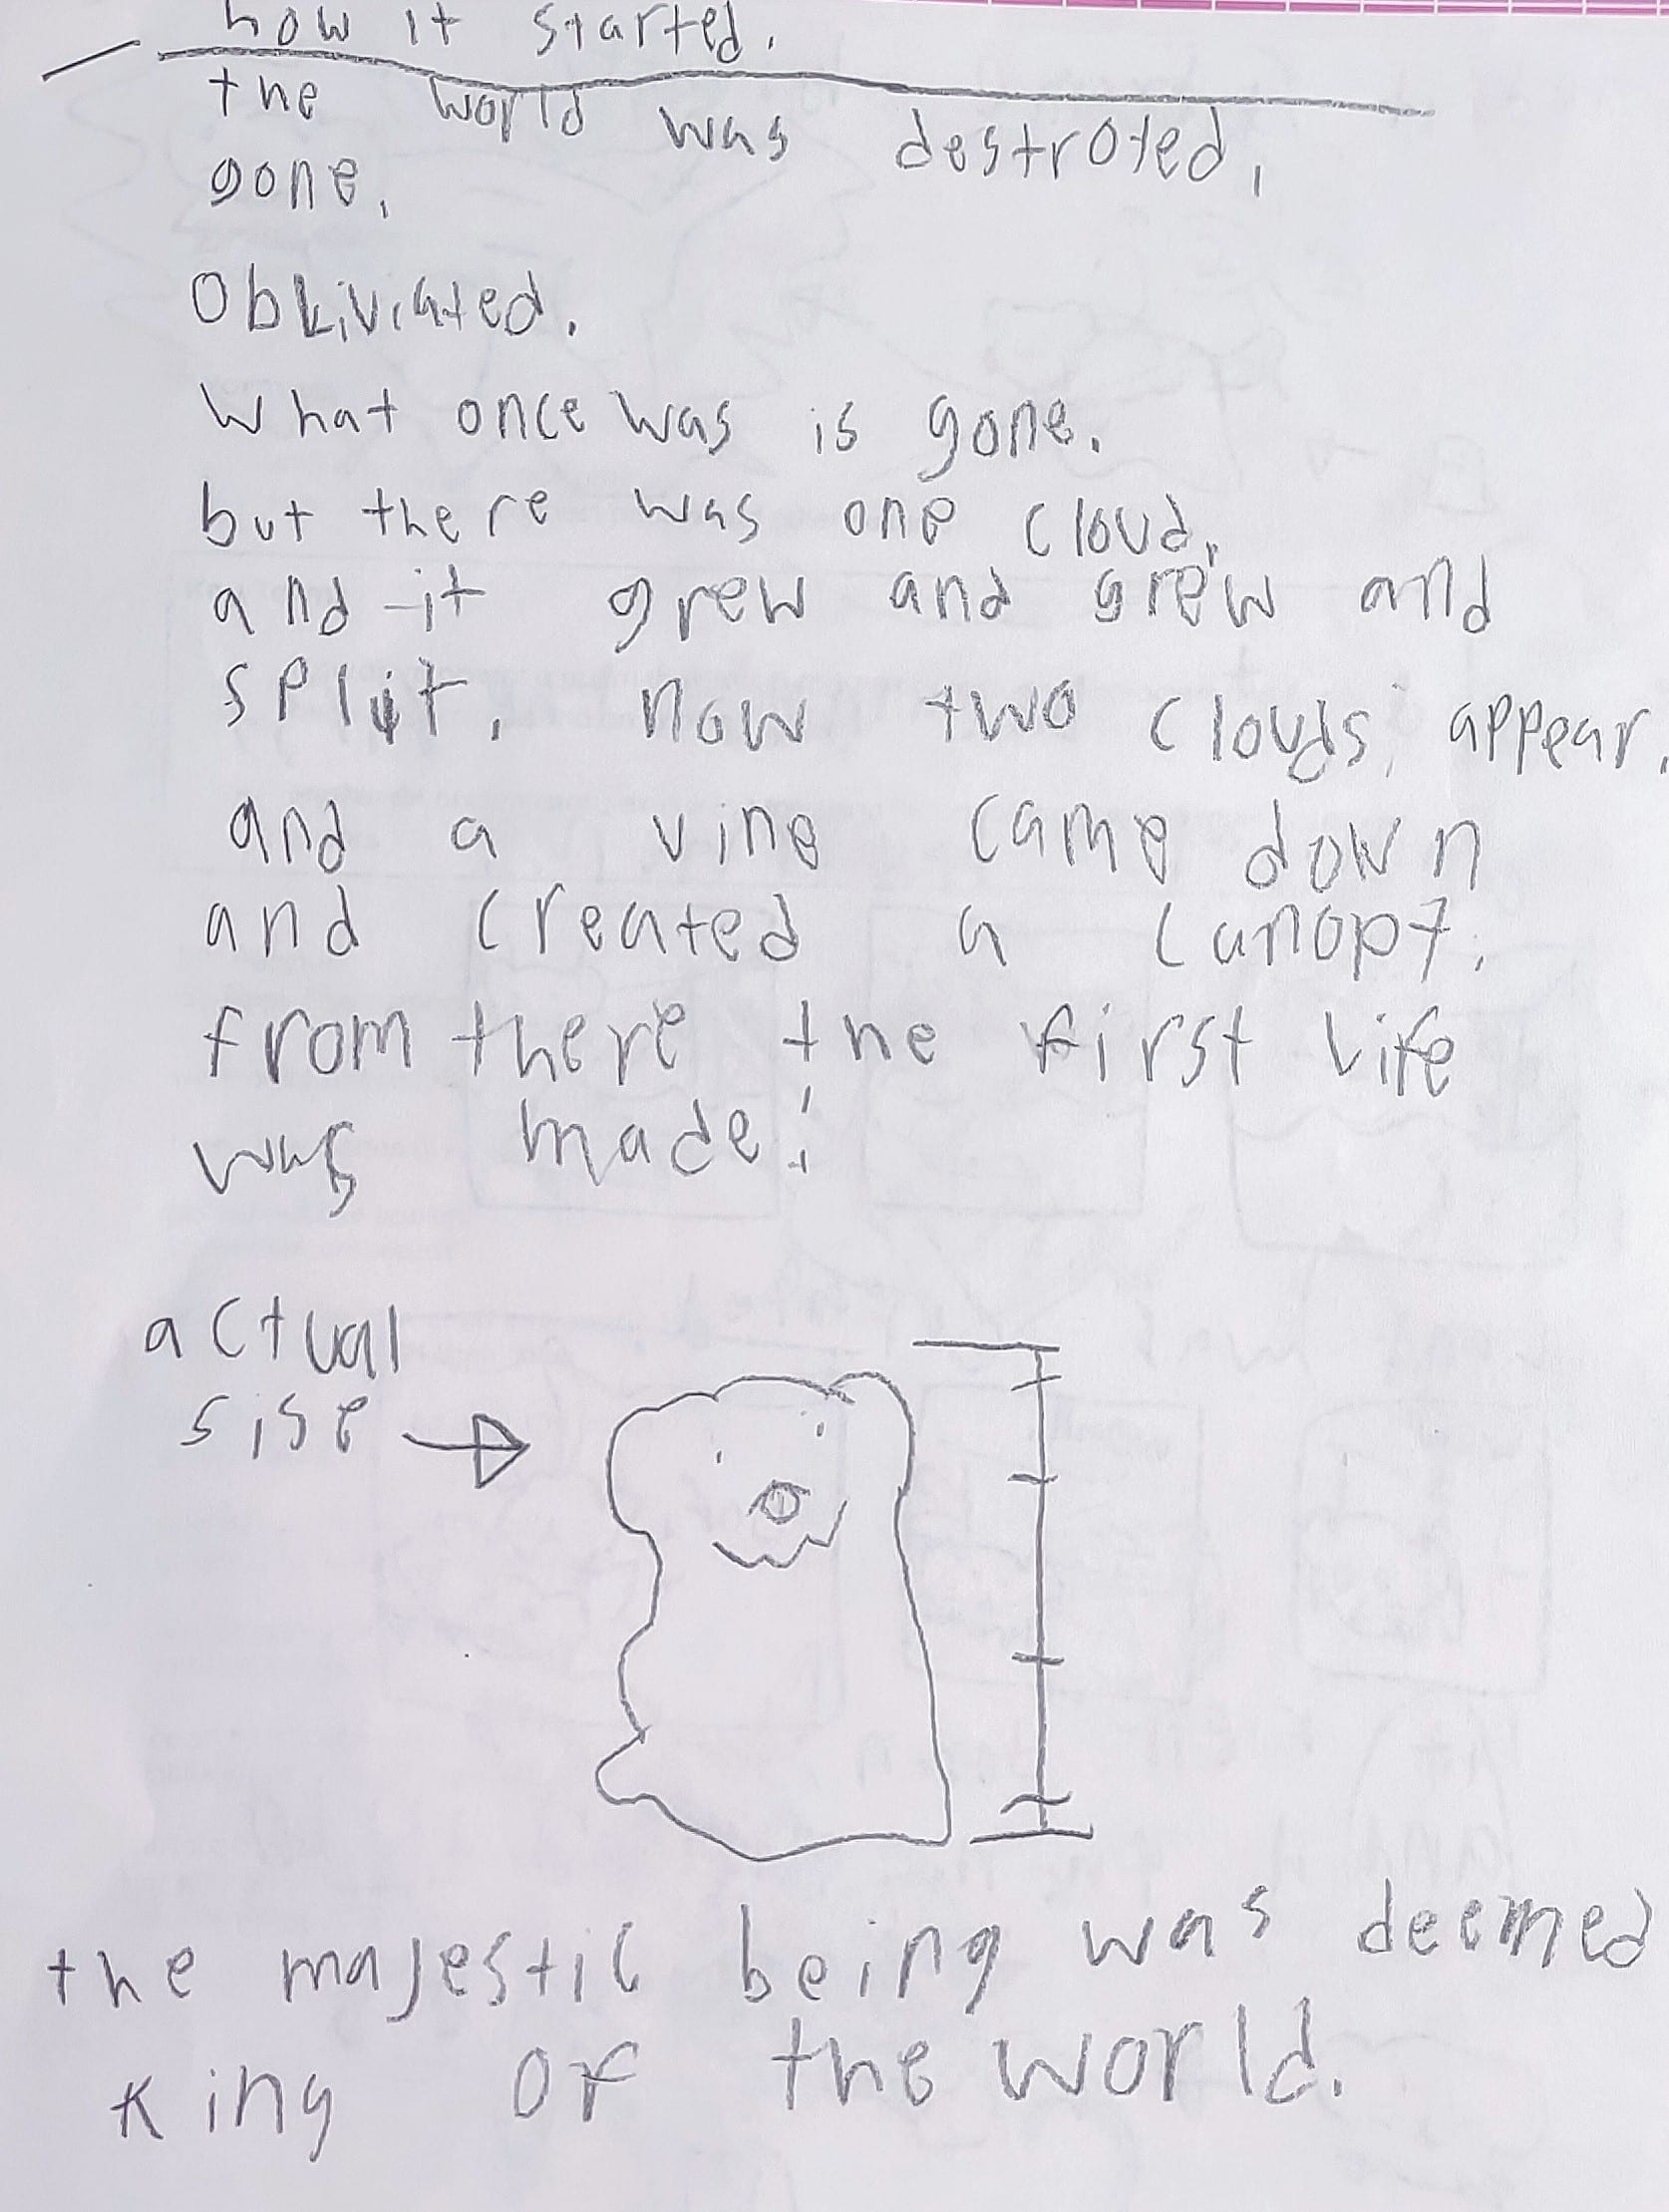 how it started.
the world was destroyed,
gone,
obliviated.
What once was is gone.
but there was one cloud.
and it grew and grew and
split. now two clouds appear.
and a vine came down
and created a canopy.
from there the first life
was made!
actual
sise
the majestic being was deemed
king of the world.